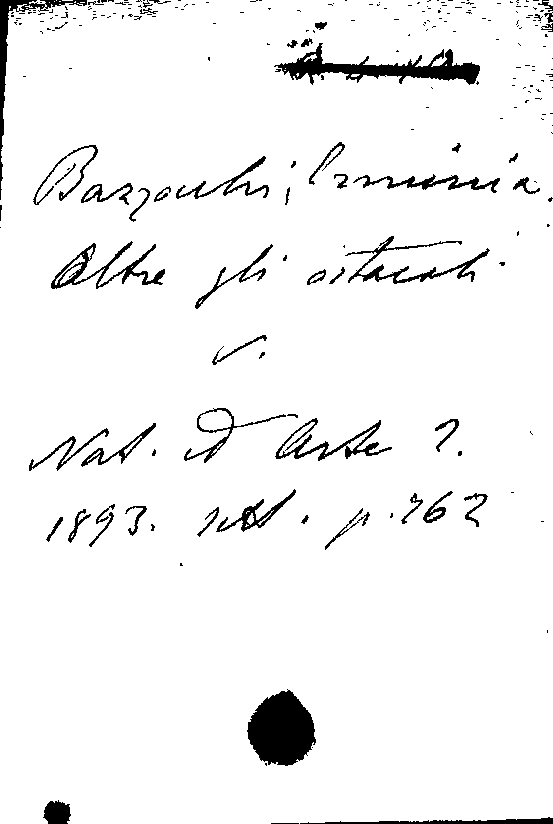 Bazzocchi, Erminia.
Oltre gli ostacoli
v.
Nat. ed Arte 2.
1893. sett. p. 762